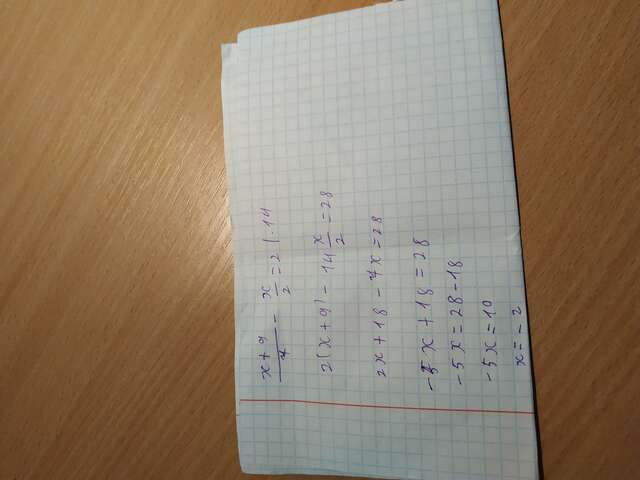 x+9/7 - x/2 = 2 | · 14
2(x+9) - 14 x/2 = 28
2x + 18 - 7x = 28
-5x + 18 = 28
-5x = 28 - 18
-5x = 10
x = -2